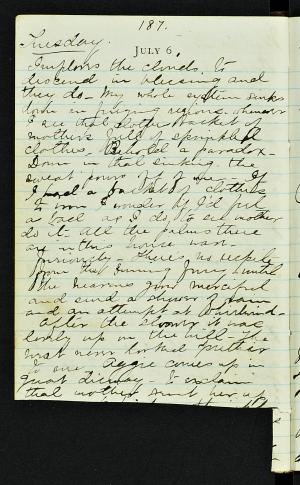 187.
Tuesday.
JULY 6,
I implore the clouds to
descend in blessing and
they do - My whole system sinks
down in freezing regions whenever
I see that clothes basket of
mother's full of sprinkled
clothes. Behold a paradox -
Down in that sinking the
sweat pours off of me - If
I had a basket of clothes
to iron I wonder if I'd feel
as bad as I do to see mother
do it - all the palms there
are in this house wave
furiously - There's no respite
from the burning fury until
the heavens grow merciful
and send a shower of rain
and an attempt at
After the shower it was
lovely up on the hill - The
west never looked prettier
to me. Aggie comes up in
great dismay - to exclaim
that mother sent her up